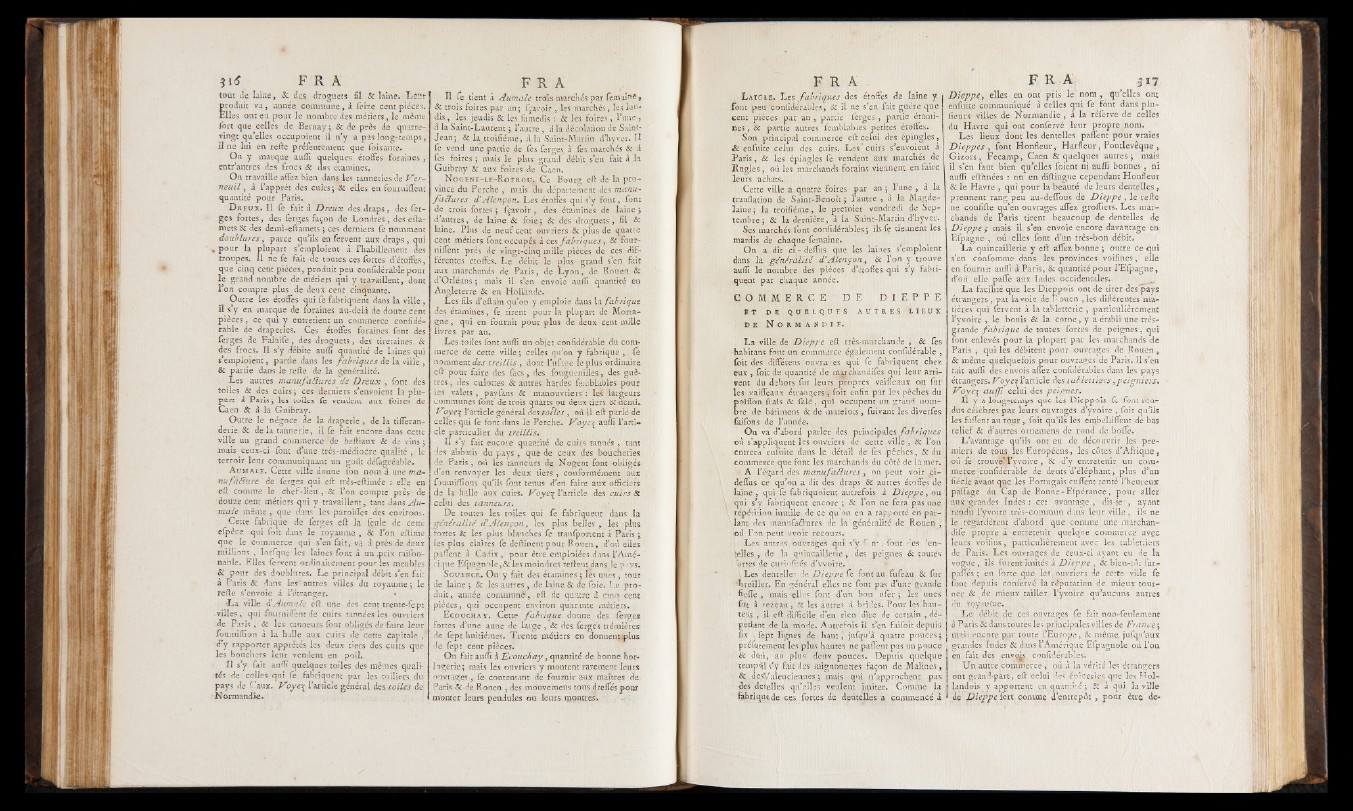 316 FRA
tout de laine, & des droguets fil & laine. Leur
produit va, année commune, à seize cent piéces.
Elles ont eu pour le nombre des métiers, le même
sort que celles de Bernay ; & de près de quatre-
vingt qu'elles occupoient il n'y a pas long-temps,
il ne lui en reste présentement que soixante.
On y marque aussi quelques étoffes foraines,
entr'autres des frocs & des étamines.
On travaille assez bien dans les tanneries de Ver-
neuil, à l'apprêt des cuirs ; & elles en fournissent
quantité pour Paris.
DREUX. Il se fait à Dreux des draps, des ser-
ges fortes, des serges façon de Londres, des esta-
mets & des demi-estamets ; ces derniers se nomment
doublures, parce qu'ils en servent aux draps, qui
pour la plupart s'emploient à l'habillement des
troupes. Il ne se fait de toutes ces sortes d'étoffes,
que cinq cent piéces, produit peu considérable pour
le grand nombre de métiers qui y travaillent, dont
l'on compte plus de deux cent cinquante.
Outre les étoffes qui se fabriquent dans la ville,
il s'y en marque de foraines au-delà de douze cent
piéces, ce qui y entretient un commerce considé-
rable de draperies. Ces étoffes foraines sont des
serges de Falaise, des droguets, des tiretaines &
des frocs. Il s'y débite aussi quantité de laines qui
s'emploient, partie dans les fabriques de la ville,
& partie dans le reste de la généralité.
Les autres manufactures de Dreux, sont des
toiles & des cuirs ; ces derniers s'envoient la plu-
part à Paris ; les toiles se vendent aux foires de
Caen & à la Guibray.
Outre le négoce de la draperie, de la tisseran-
derie & de la tannerie, il se fait encore dans cette
ville un grand commerce de bestiaux & de vins ;
mais ceux-ci sont d'une très-médiocre qualité, le
terroir leur communiquant un goût désagréable.
AUMALE. Cette ville donne son nom à une ma-
nufacture de serges qui est très-estimée : elle en
est comme le chef-lieu, & l'on compte près de
douze cent métiers qui y travaillent, tant dans Au-
male même, que dans les paroisses des environs.
Cette fabrique de serges est la seule de cette
espèce qui soit dans le royaume, & l'on estime
que le commerce qui s'en fait, va à près de deux
millions, lorsque les laines sont à un prix raison-
nable. Elles servent ordinairement pour les meubles
& pour des doublures. Le principal débit s'en fait
à Paris & dans les autres villes du royaume ; le
reste s'envoie à l'étranger.
La ville d'Aumale est une des cent trente-sept
villes, qui fournissent de cuirs tannées les ouvriers
de Paris, & les tanneurs sont obligés de faire leur
fournission à la halle aux cuirs de cette capitale,
d'y rapporter apprêtés les deux tiers des cuirs que
les bouchers leur vendent en poil.
Il s'y fait aussi quelques toiles des mêmes quali-
tés de celles qui se fabriquent par les toiliers du
pays de Caux. Voyez l'article général des toiles de
Normandie.
FRA
Il se tient à Aumale trois marchés par semaine,
& trois foires par an ; sçavoir, les marchés, les lun-
dis, les jeudis & les samedis : & les foires, l'une,
à la Saint-Laurent ; l'autre, à la décolation de Saint-
Jean ; & la troisiéme, à la Saint-Martin d'hyver. Il
se vend une partie de ses serges à ses marchés & à
ses foires ; mais le plus grand débit s'en fait à la
Guibray & aux foires de Caen.
NOGENT-LE-ROTROU. Ce Bourg est de la pro-
vince du Perche, mais du département des manu-
factures d'Alençon. Les étoffes qui s'y font, sont
de trois sortes ; sçavoir, des étamines de laine ;
d'autres, de laine & soie ; & des droguets, fil &
laine. Plus de neuf cent ouvriers & plus de quatre
cent métiers sont occupés à ces fabriques, & four-
nissent près de vingt-cinq mille piéces de ces dif-
férentes étoffes. Le débit le plus grand s'en fait
aux marchands de Paris, de Lyon, de Rouen &
d'Orléans ; mais il s'en envoie aussi quantité en
Angleterre & en Hollande.
Les fils d'estaim qu'on y emploie dans la fabrique
des étamines, se tirent pour la plupart de Morta-
gne, qui en fournit pour plus de deux cent mille
livres par an.
Les toiles sont aussi un objet considérable du com-
merce de cette ville ; celles qu'on y fabrique, se
nomment des treillis, dont l'usage le plus ordinaire
est pour faire des sacs, des souguenilles, des guê-
tres, des culottes & autres hardes semblables pour
les valets, paysans & manouvriers : les largeurs
communes sont de trois quarts ou deux tiers & demi.
Voyez l'article général des toiles, où il est parlé de
celles qui se font dans le Perche. Voyez aussi l'arti-
cle particulier du treillis.
Il s'y fait encore quantité de cuirs tannés, tant
des abbatis du pays, que de ceux des boucheries
de Paris, où les tanneurs de Nogent sont obligés
d'en renvoyer les deux tiers, conformément aux
fournissions qu'ils sont tenus d'en faire aux officiers
de la halle aux cuirs. Voyez l'article des cuirs &
celui des tanneurs.
De toutes les toiles qui se fabriquent dans la
généralité d'Alençon, les plus belles, les plus
fortes & les plus blanches se transportent à Paris ;
les plus claires se destinent pour Rouen, d'où elles
passent à Cadix, pour être emploiées dans l'Amé-
rique Espagnole, & les moindres restent dans le pays.
SOUANCE. On y fait des étamines ; les unes, tout
de laine ; & les autres, de laine & de soie. Le pro-
duit, année commune, est de quatre à cinq cent
piéces, qui occupent environ quarante métiers.
ECOUCHAY. Cette fabrique donne des serges
fortes d'une aune de large, & des serges trémières
de sept huitiémes. Trente métiers en donnent plus
de sept cent piéces.
On fait aussi à Ecouchay, quantité de bonne hor-
logerie ; mais les ouvriers y montent rarement leurs
ouvrages, se contentant de fournir aux maîtres de
Paris & de Rouen, des mouvemens tous dressés pour
monter leurs pendules ou leurs montres.
FRA
LAIGLE. Les fabriques des étoffes de laine y
sont peu considérables, & il ne s'en fait guère que
cent piéces par an, partie serges, partie étami-
nes, & partie autres semblables petites étoffes.
Son principal commerce est celui des épingles,
& ensuite celui des cuirs. Les cuirs s'envoient à
Paris, & les épingles se vendent aux marchés de
Rugles, où les marchands forains viennent en faire
leurs achats.
Cette ville a quatre foires par an ; l'une, à la
translation de Saint-Benoît ; l'autre, à la Magde-
laine ; la troisiéme, le premier vendredi de Sep-
tembre ; & la dernière, à la Saint-Martin d'hyver.
Ses marchés sont considérables ; ils se tiennent les
mardis de chaque semaine.
On a dit ci-dessus que les laines s'emploient
dans la généralité d'Alençon, & l'on y trouve
aussi le nombre des piéces d'étoffes qui s'y fabri-
quent par chaque année.
COMMERCE DE DIEPPE
ET DE QUELQUES AUTRES LIEUX
DE NORMANDIE.
La ville de Dieppe est très-marchande, & ses
habitans font un commerce également considérable,
soit des différens ouvrages qui se fabriquent chez
eux, soit de quantité de marchandises qui leur arri-
vent du dehors sur leurs propres vaisseaux ou sur
les vaisseaux étrangers, soit enfin par les pêches du
poisson frais & salé, qui occupent un grand nom-
bre de bâtimens & de matelots, suivant les diverses
saisons de l'année.
On va d'abord parler des principales fabriques
où s'appliquent les ouvriers de cette ville, & l'on
entrera ensuite dans le détail de ses pêches, & du
commerce que font les marchands du côté de la mer.
A l'égard des manufactures, on peut voir ci-
dessus ce qu'on a dit des draps & autres étoffes de
laine, qui se fabriquoient autrefois à Dieppe, ou
qui s'y fabriquent encore ; & l'on ne fera pas une
répétition inutile de ce qu'on en a rapporté en par-
lant des manufactures de la généralité de Rouen,
où l'on peut avoir recours.
Les autres ouvrages qui s'y font sont des den-
telles, de la quincaillerie, des peignes & toutes
sortes de curiosités d'yvoire.
Les dentelles de Dieppe se font au fuseau & sur
l'oreiller. En général elles ne sont pas d'une grande
finesse, mais elles sont d'un bon user ; les unes
sont à rezeau, & les autres à brides. Pour les hau-
teurs, il est difficile d'en rien dire de certain, dé-
pendant de la mode. Autrefois il s'en faisoit depuis
six, sept lignes de haut, jusqu'à quatre pouces ;
présentement les plus hautes ne passent pas un pouce
& demi, au plus deux pouces. Depuis quelque
temps il s'y fait des mignonettes façon de Malines,
& des Valenciennes ; mais qui n'approchent pas
des dentelles qu'elles veulent imiter. Comme la
fabrique de ces sortes de dentelles a commencé à
FRA 317
Dieppe, elles en ont pris le nom, qu'elles ont
ensuite communiqué à celles qui se font dans plu-
sieurs villes de Normandie, à la réserve de celles
du Havre qui ont conservé leur propre nom.
Les lieux dont les dentelles passent pour vraies
Dieppes, sont Honfleur, Harfleur, Pontlevêque,
Gizors, Fecamp, Caen & quelques autres ; mais
il s'en faut bien qu'elles soient ni aussi bonnes, ni
aussi estimées : on en distingue cependant Honfleur
& le Havre, qui pour la beauté de leurs dentelles,
prennent rang peu au-dessous de Dieppe, le reste
ne consiste qu'en ouvrages assez grossiers. Les mar-
chands de Paris tirent beaucoup de dentelles de
Dieppe ; mais il s'en envoie encore davantage en
Espagne, où elles sont d'un très-bon débit.
La quincaillerie y est assez bonne ; outre ce qui
s'en consomme dans les provinces voisines, elle
en fournit aussi à Paris, & quantité pour l'Espagne,
d'où elle passe aux Indes occidentales.
La facilité que les Dieppois ont de tirer des pays
étrangers, par la voie de Rouen, les différentes ma-
tières qui servent à la tabletterie, particulièrement
l'yvoire, le bouis & la corne, y a établi une très-
grande fabrique de toutes sortes de peignes, qui
sont enlevés pour la plupart par les marchands de
Paris, qui les débitent pour ouvrages de Rouen,
& même quelquefois pour ouvrages de Paris. Il s'en
fait aussi des envois assez considérables dans les pays
étrangers. Voyez l'article des tablettiers, peigniers.
Voyez aussi celui des peignes.
Il y a long-temps que les Dieppois se sont ren-
dus célèbres par leurs ouvrages d'yvoire, soit qu'ils
les fassent au tour, soit qu'ils les embellissent de bas
relief & d'autres ornemens de rond de bosse.
L'avantage qu'ils ont eu de découvrir les pre-
miers de tous les Européens, les côtes d'Afrique,
où se trouve l'yvoire, & d'y entretenir un com-
merce considérable de dents d'éléphant, plus d'un
siécle avant que les Portugais eussent tenté l'heureux
passage du Cap de Bonne-Espérance, pour aller
aux grandes Indes : cet avantage, dis-je, ayant
rendu l'yvoire très-commun dans leur ville, ils ne
le regardèrent d'abord que comme une marchan-
dise propre à entretenir quelque commerce avec
leurs voisins, particuliérement avec les tablettiers
de Paris. Les ouvrages de ceux-ci ayant eu de la
vogue, ils furent imités à Dieppe, & bien-tôt sur-
passés ; en sorte que les ouvriers de cette ville se
sont depuis conservé la réputation de mieux tour-
ner & de mieux tailler l'yvoire qu'aucuns autres
du royaume.
Le débit de ces ouvrages se fait non-seulement
à Paris & dans toutes les principales villes de France ;
mais encore par toute l'Europe, & même jusqu'aux
grandes Indes & dans l'Amérique Espagnole où l'on
en fait des envois considérables.
Un autre commerce, où à la vérité les étrangers
ont grand-part, est celui des épiceries que les Hol-
landois y apportent en quantité ; & à qui la ville
de Dieppe sert comme d'entrepôt, pour être dé-